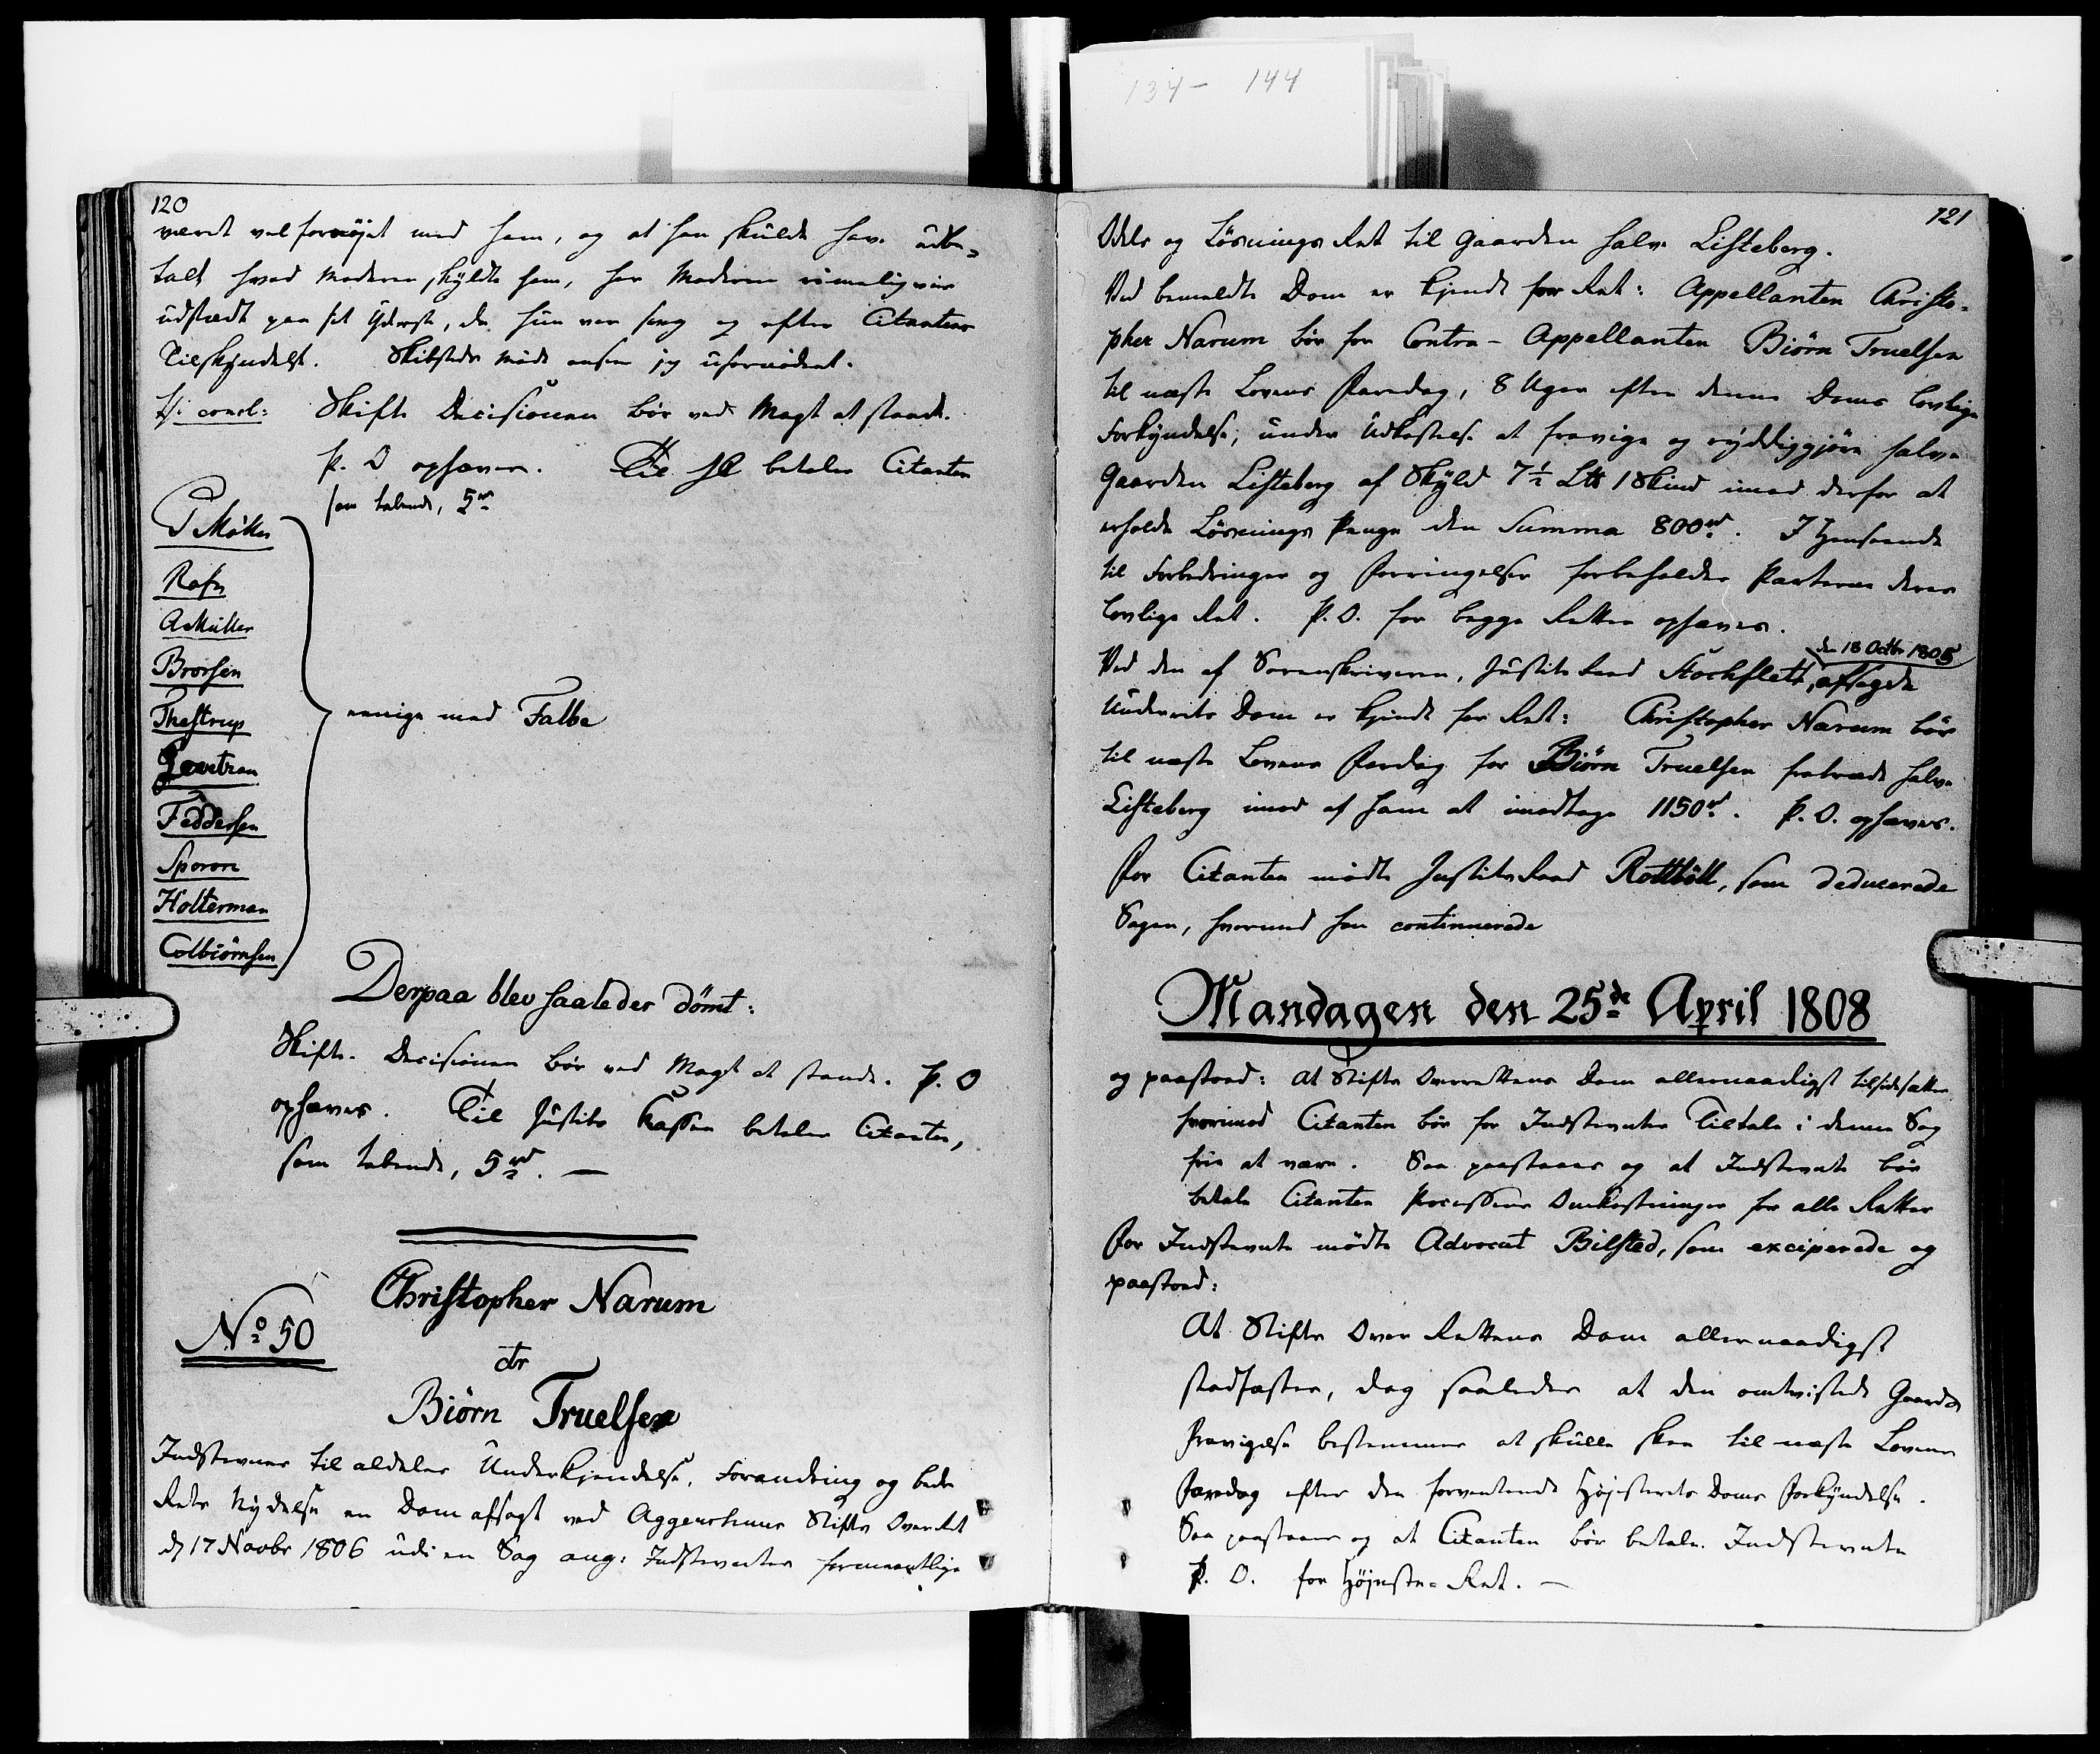 134 - 144
120
været velfornøjet med ham, og at han skulde have udbe-
talt hvad Moderen skyldte ham, har Moderen rimeligviis
udstædt paa sit Yderste, da hun var svag og efter Citantens
Tilskyndelse. Skiftets Møde anseer jeg ufornødent.
In concl: Skifte Decisionen bør ved Magt at stande.
P. O ophæves. Til JC betaler Citanten
som tabende, 5 rd
P Møller
Rafn
A Müller
Brorsen
Thestrup
Feddersen
Sporon
Holterman
Colbiørnsen
eenige med Falbe
Derpaa blev saaledes dømt:
Skifte-Decisionen bør ved Magt at stande. P. O
ophæves. Til Justits Kassen betaler Citanten,
som tabende, 5 rd. —
No 50
Christopher Narum
ctr
Biørn Truelsen
Indstevner til aldeles Underkjendelse, Forandring og bedre
Rets Nydelse en Dom afsagt ved Aggershuus Stifts Over Ret
d 17 Novbr 1806 udi en Sag ang: Indstevntes formeentlige
121
Odels og Løsnings Ret til Gaarden halve Listeberg.
Ved bemeldte Dom er kjendt for Ret: Appellanten Christo-
pher Narum bør for Contra-Appellanten Biørn Truelsen
til næste Lovens Faredag, 8 Uger efter denne Doms lovlige
Forkyndelse, under Udkastelse at fravige og ryddiggjøre halve
Gaarden Listeberg af Skyld 7½ L℔ 1 Skind imod derfor at
erholde Løsnings Penge den Summa 800 rd. I Henseende
til Forbedringer og Forringelser forbeholdes Parterne deres
lovlige Ret. P. O. for begge Retter ophæves.
den 18 Octbr 1805
Ved den af Sorenskriveren, Justits Raad Stockfleth, afsagde
Underrets Dom er kjendt for Ret: Christopher Narum bør
til næste Lovens Faredag for Biørn Truelsen fratræde halve
Listeberg imod af ham at imodtage 1150 rd. P. O. ophæves.
For Citanten mødte Justits Raad Rottbøll, som deducerede
Sagen, hvormed han continuerede
Mandagen den 25de April 1808
og paastod: At Stifts Overrettens Dom allernaadigst tilsidesættes
hvorimod Citanten bør for Indstevntes Tiltale i denne Sag
frie at være. Saa paastaaes og at Indstevnte bør
betale Citanten Processens Omkostninger for alle Retter
For Indstevnte mødte Advocat Bilsted, som exciperede og
paastod:
At Stifts Over Rettens Dom allernaadigst
stadfæstes, dog saaledes at den omtvistede Gaards
Fravigelse bestemmes at skulle skee til næste Lovens
Faredag efter den forventende Højesterets Doms Forkyndelse.
Saa paastaaes og at Citanten bør betale Indstevnte
P. O. for Højeste-Ret. —